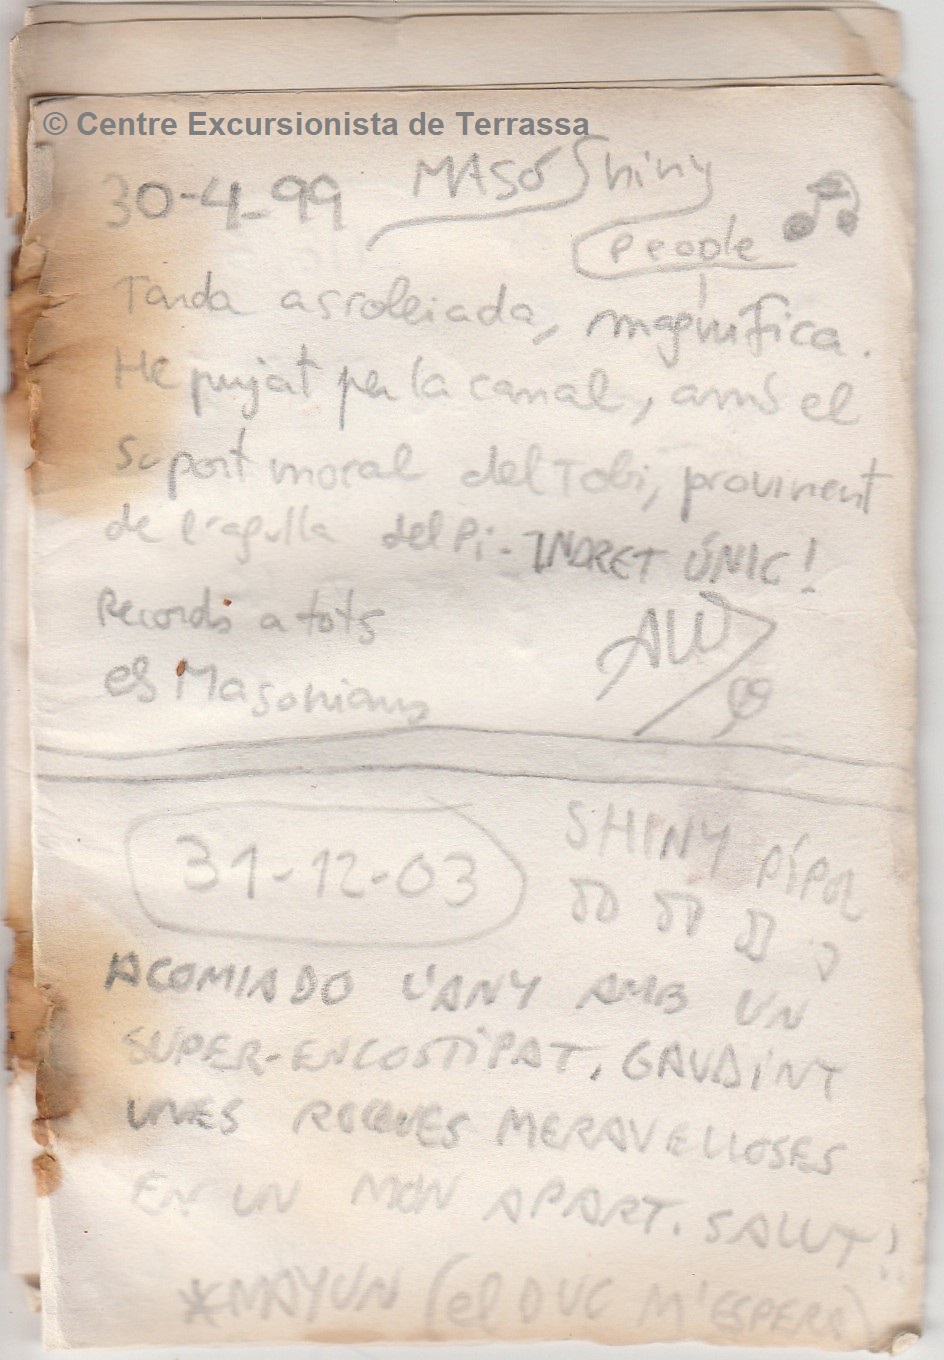 © Centre Excursionista de Terrassa
30-4-99 MASÓ Shiny
People
Tarda assoleiada, magnífica.
He pujat per la canal, amb el
suport moral del Tobi, provinent
de l'agulla del Pi - INDRET ÚNIC!
Records a tots
els Masonians
99
31-12-03 SHINY PÍPOL
ACOMIADO L'ANY AMB UN
SUPER-ENCOSTIPAT, GAUDINT
UNES ROQUES MERAVELLOSES
EN UN MÓN APART. SALUT!
*MAYUN (el DUC M'ESPERA)